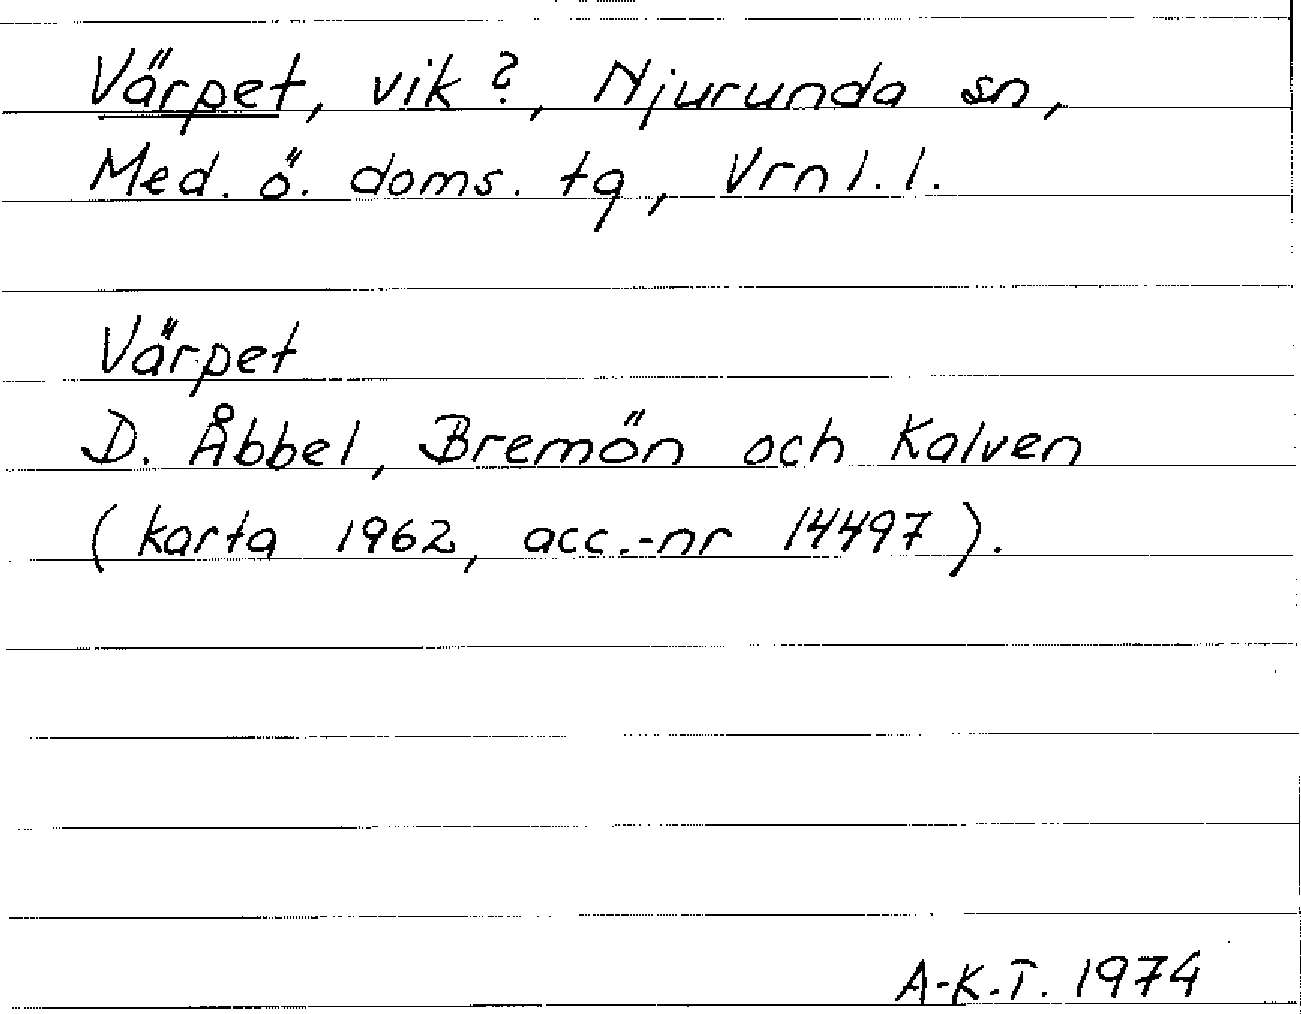 Värpet, vik?, Njurunda sn,
Med. ö. doms. tg, Vrnl. l.
Värpet
D. Åbbel, Bremön och Kalven
(karta 1962, acc.-nr 14497).
A-K.T. 1974